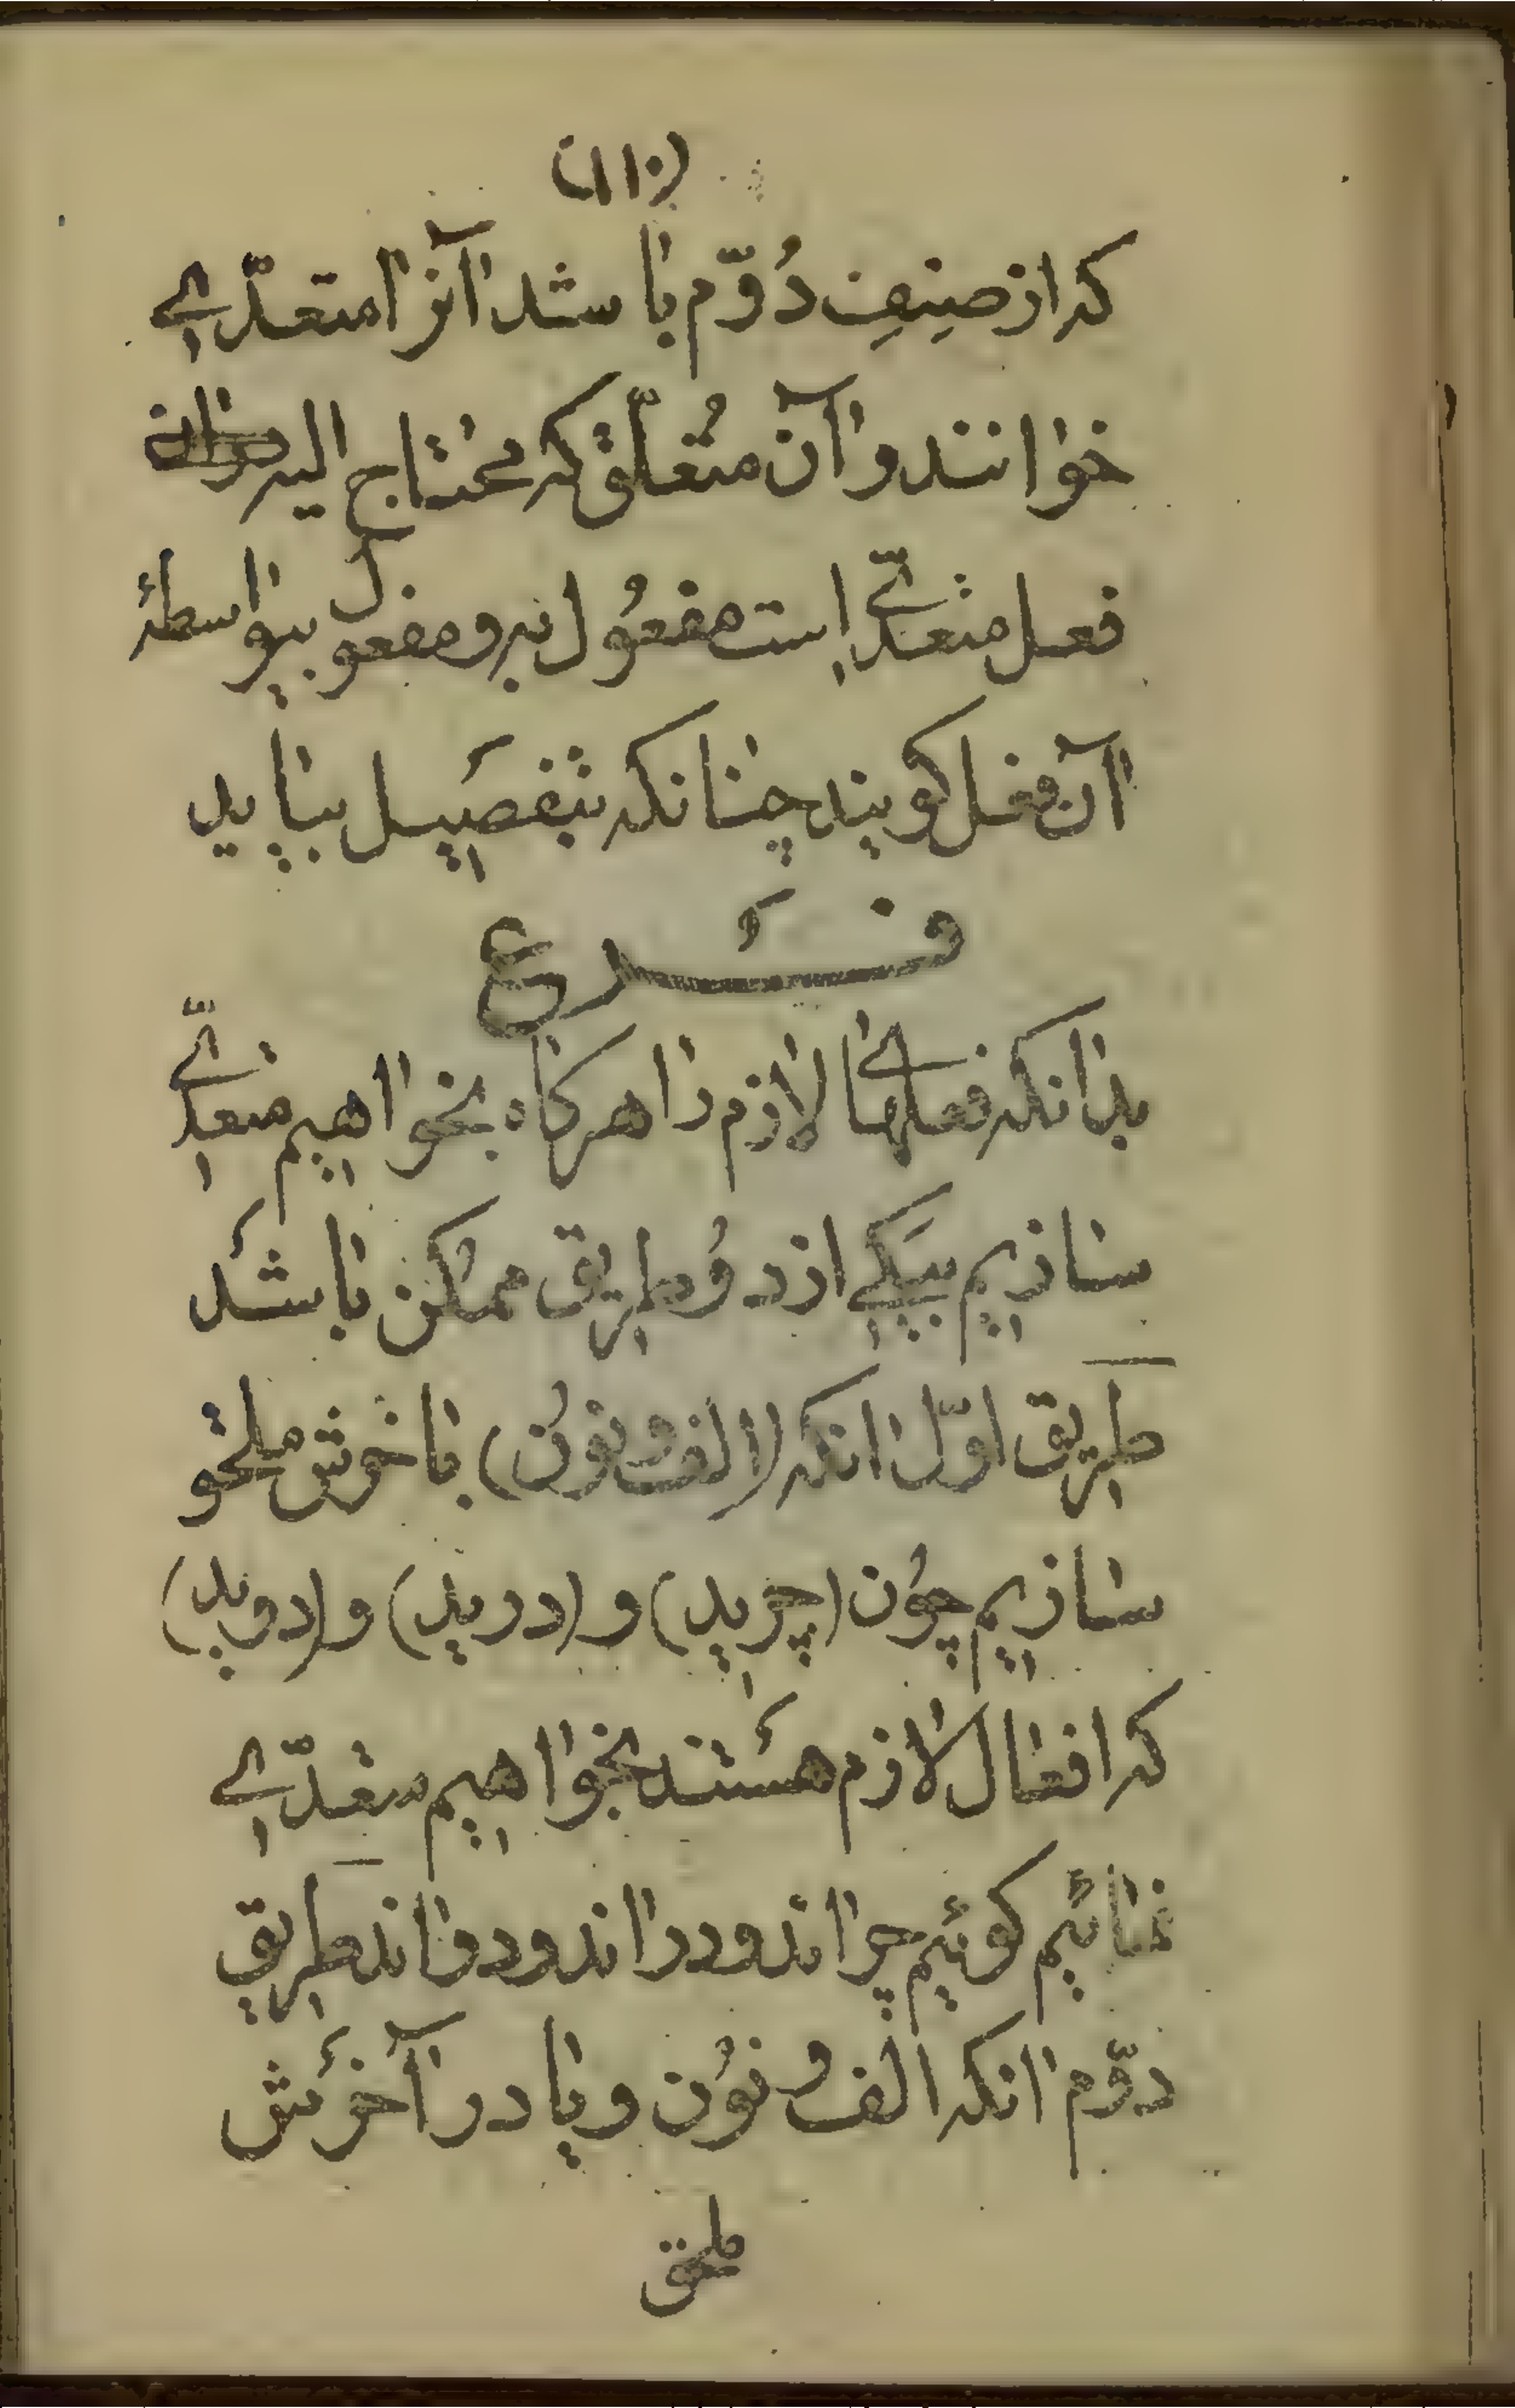 (۱۱۰)
که از صِنِفِ دُوّم باشد آنرا متعدّیِ
خوانند و آن متُعلّق که محتاج الیه
فعل متعدّیِ است مفعُول به و مفعول بیواسطهٔ
آن فعل کویند چنانکه بتفصِیل بیاید
فَرع
بدانکه فعلهای لازم را هرکاه بخواهِیم متعدّیِ
سازِیم بیَکیِ از دُو طرِیق ممُکن باشَد
طرِیق اوّل انکه (الف و نوُن) باخرش ملحق
سازِیم چوُن (چرِید) و (درید) و (دوید)
که افعال لازم هسَتند بخواهِیم متعدّیِ
نمائیم کوئیم چراند و دراند و دواند طرِیق
دوّم انکه الف و نوُن و یا در آخرَش
ملحق